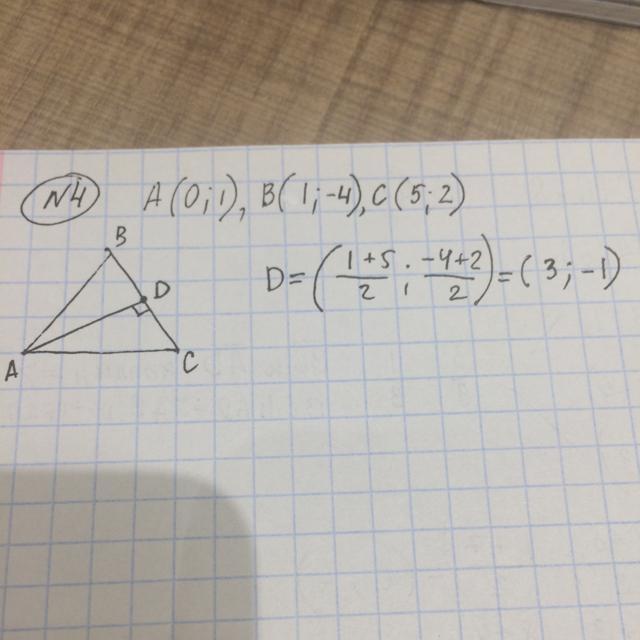 N4 A(0;1), B(1;-4), C(5;2)
B
D
A
C
D=(1+5/2;-4+2/2)=(3;-1)